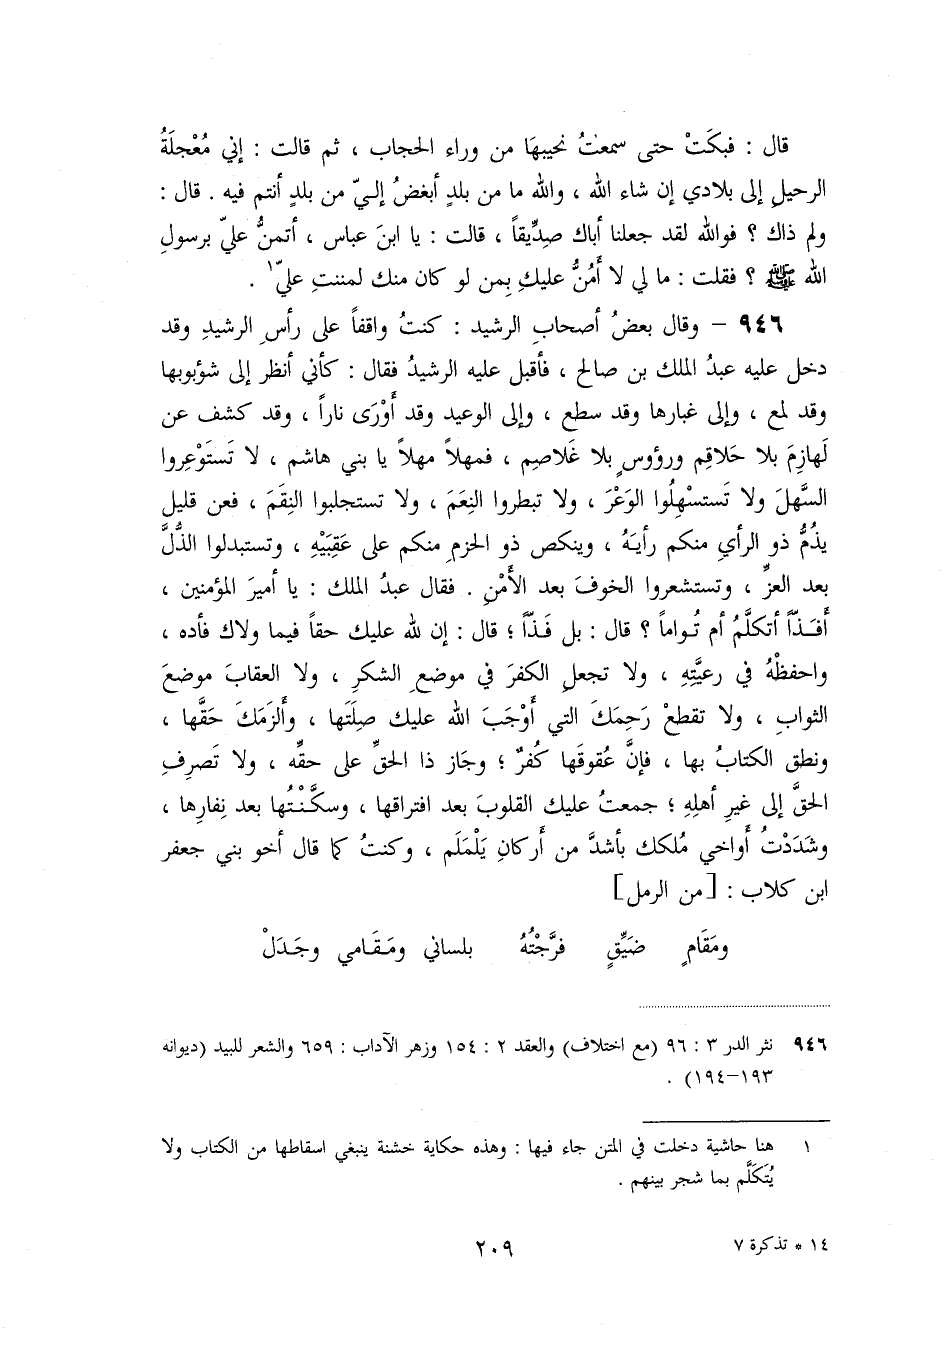 قال : فبكَتْ حتى سمعتُ نحيبهَا من وراء الحجاب ، ثم قالت : إني مُعْجلَةُ
الرحيلِ إلى بلادي إن شاء الله ، والله ما من بلدٍ أبغضُ إليّ من بلدٍ أنتم فيه . قال :
ولم ذاك ؟ فوالله لقد جعلنا أباك صِدِّيقاً ، قالت : يا ابنَ عباس ، أتمنُّ عليّ برسولِ
الله ﷺ ؟ فقلت : ما لي لا أَمُنُّ عليكِ بِمن لو كان منك لمننتِ عليّ١ .
٩٤٦ – وقال بعضُ أصحابِ الرشيد : كنتُ واقفاً على رأسِ الرشيدِ وقد
دخل عليه عبدُ الملك بن صالح ، فأقبل عليه الرشيدُ فقال : كأني أنظر إلى شؤبوبها
وقد لمع ، وإلى غبارها وقد سطع ، وإلى الوعيد وقد أَوْرَى ناراً ، وقد كشف عن
لَهازِمَ بلا حَلاقِم ورؤوسٍ بلا غَلاصِم ، فمهلاً مهلاً يا بني هاشم ، لا تَستَوْعِروا
السَّهلَ ولا تَستسْهِلُوا الوَعْرَ ، ولا تبطروا النِعَمَ ، ولا تستجلبوا النِقَمَ ، فعن قليل
يذُمُّ ذو الرأي منكم رأيَهُ ، وينكص ذو الحزم منكم على عَقِبَيْهِ ، وتستبدلوا الذُّلَّ
بعد العزِّ ، وتستشعروا الخوفَ بعد الأَمْنِ . فقال عبدُ الملك : يا أميرَ المؤمنين ،
أَفَذّاً أتكلَّمُ أم تُواماً ؟ قال : بل فَذّاً ؛ قال : إن لله عليك حقاً فيما ولاك فأده ،
واحفظْهُ في رعيَّتِهِ ، ولا تجعلِ الكفرَ في موضعِ الشكرِ ، ولا العقابَ موضعَ
الثوابِ ، ولا تقطعْ رَحِمَكَ التي أَوْجَبَ الله عليك صِلَتَها ، وأَلزَمَكَ حَقَّها ،
ونطق الكتابُ بها ، فإنَّ عُقوقَها كُفرٌ ؛ وجَاز ذا الحقِّ على حقِّه ، ولا تَصرِفِ
الحقَّ إلى غيرِ أهلِهِ ؛ جمعتُ عليك القلوبَ بعد افتراقها ، وسكَّنْتُها بعد نِفارِها ،
وشَدَدْتُ أَواخي مُلكك بأشدَّ من أَركانِ يَلْمَلَم ، وكنتُ كما قال أخو بني جعفر
ابن كلاب : [من الرمل]
ومَقَامٍ ضَيِّقٍ فرَّجْتُهُ بلساني ومَقَامي وجَدَلْ
٩٤٦ نثر الدر ٣ : ٩٦ (مع اختلاف) والعقد ٢ : ١٥٤ وزهر الآداب : ٦٥٩ والشعر للبيد (ديوانه
١٩٣–١٩٤) .
١ هنا حاشية دخلت في المتن جاء فيها : وهذه حكاية خشنة ينبغي اسقاطها من الكتاب ولا
يُتَكَلَّم بما شجر بينهم .
١٤ * تذكرة ٧
٢٠٩